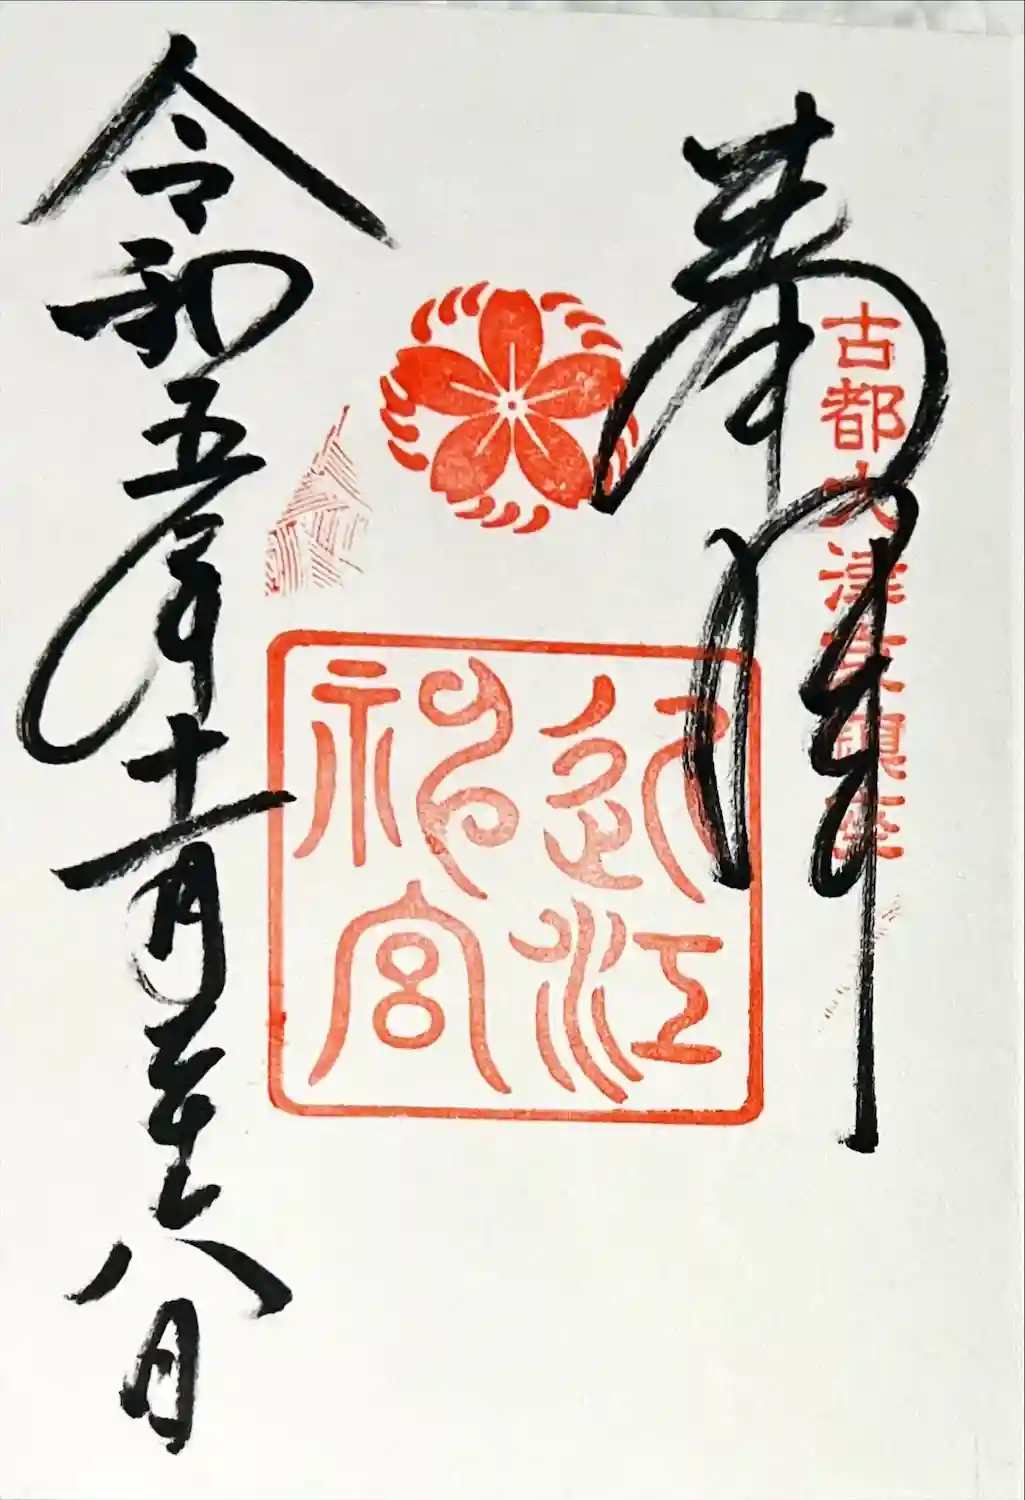 奉拝
古都大津京鎮座
近江
神宮
令和五年十一月二十六日